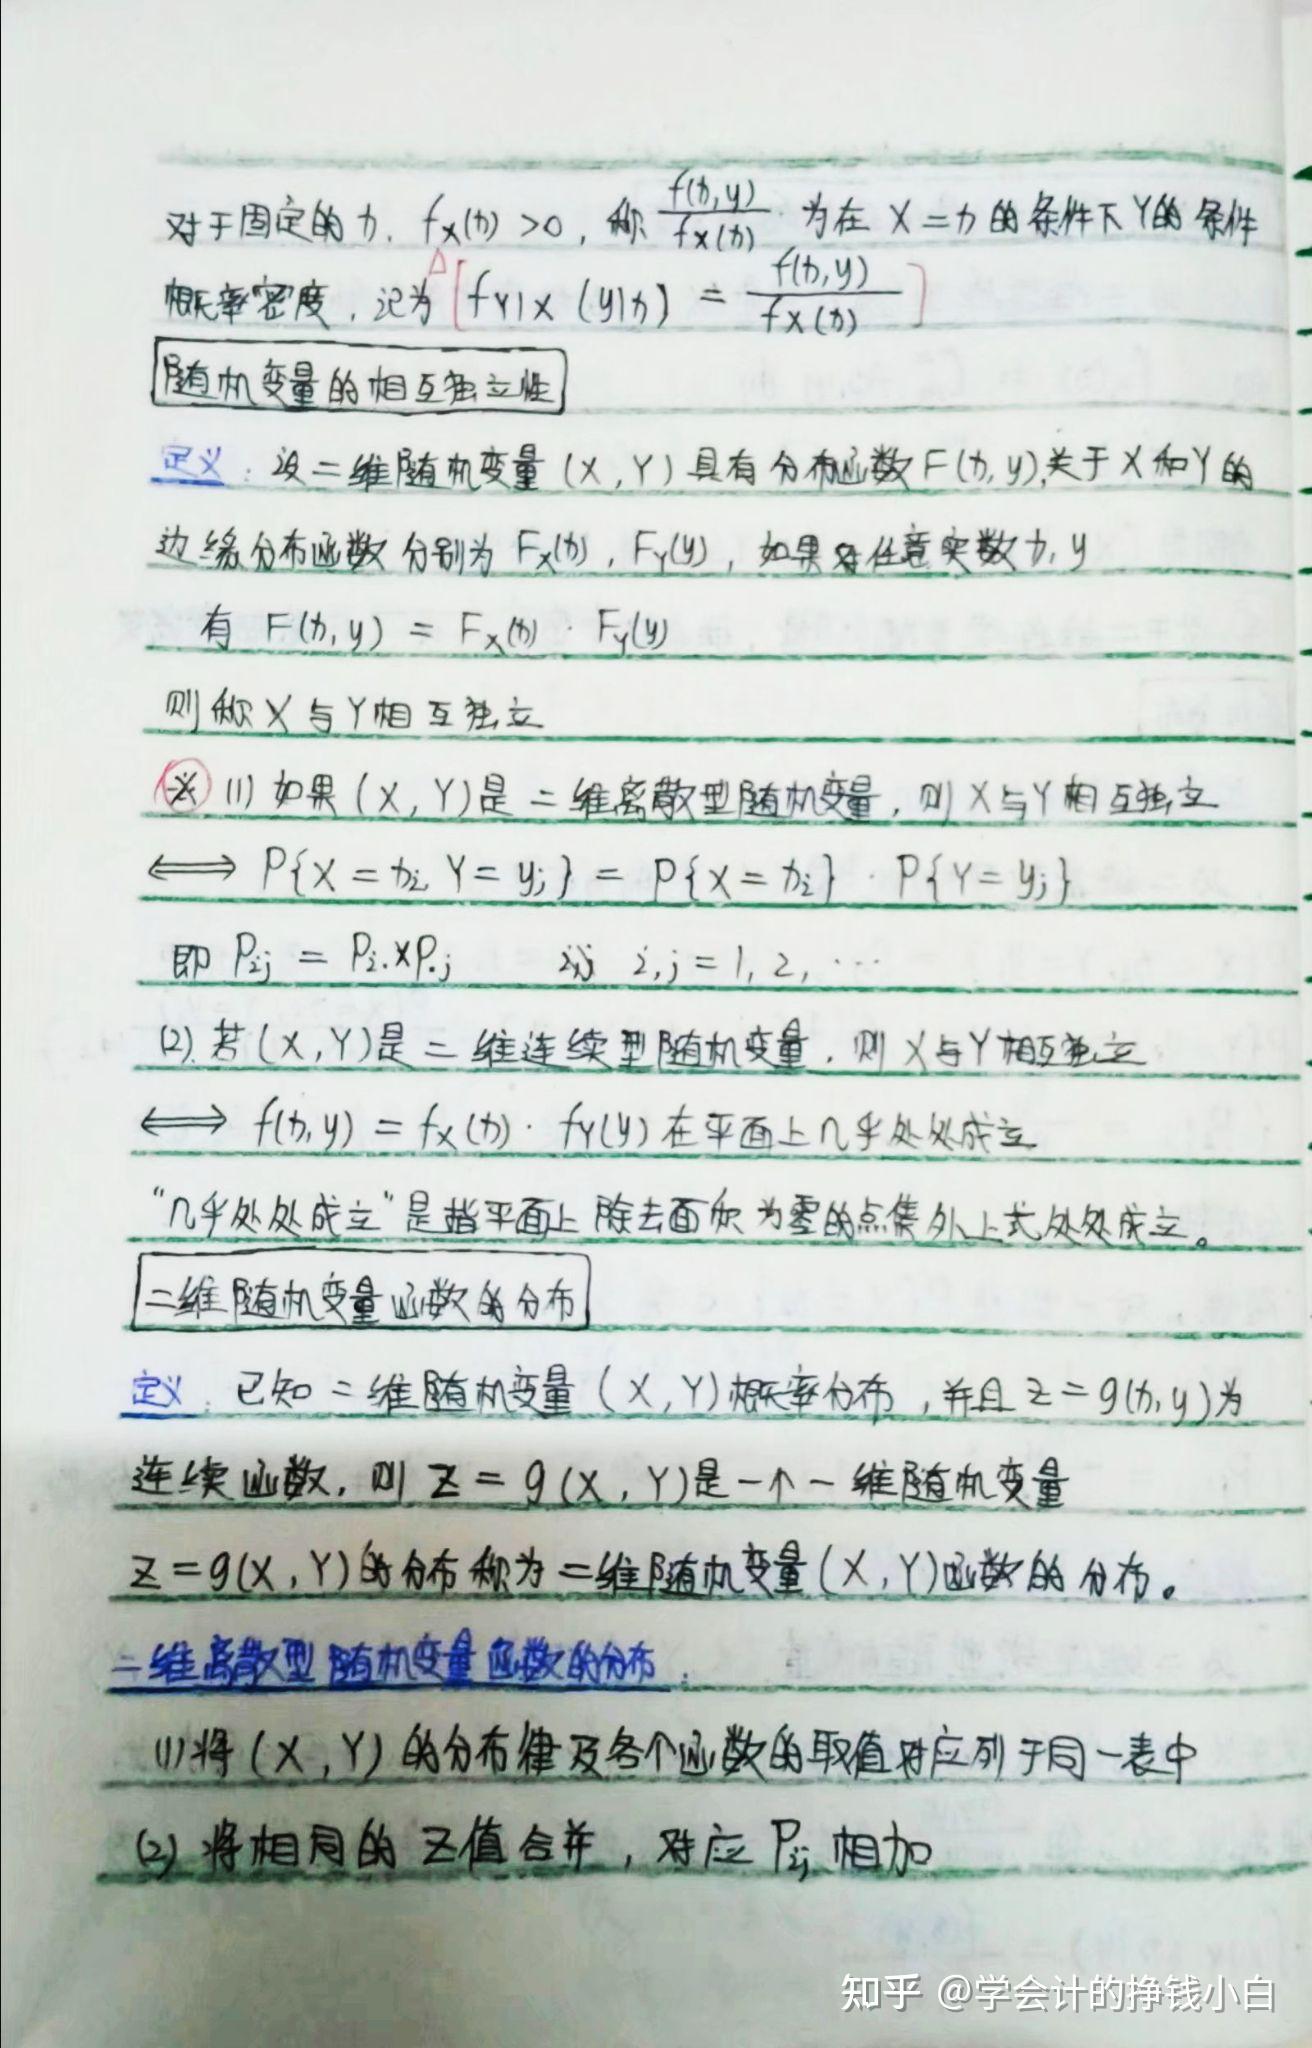 对于固定的x, f_X(x)>0, 称 f(x,y)/f_X(x) 为在X=x的条件下Y的条件
概率密度, 记为[f_{Y|X}(y|x) = f(x,y)/f_X(x)]
随机变量的相互独立性
定义: 设二维随机变量(X,Y)具有分布函数F(x,y),关于X和Y的
边缘分布函数分别为F_X(x), F_Y(y), 如果对任意实数x,y
有 F(x,y) = F_X(x)·F_Y(y)
则称X与Y相互独立
※ (1) 如果(X,Y)是二维离散型随机变量, 则X与Y相互独立
⟺ P{X=x_i, Y=y_j} = P{X=x_i}·P{Y=y_j}
即 P_ij = P_i.×P_.j i,j=1,2,…
(2). 若(X,Y)是二维连续型随机变量, 则X与Y相互独立
⟺ f(x,y) = f_X(x)·f_Y(y)在平面上几乎处处成立
“几乎处处成立”是指平面上除去面积为零的点集外上式处处成立。
二维随机变量函数的分布
定义: 已知二维随机变量(X,Y)概率分布, 并且z=g(x,y)为
连续函数, 则Z=g(X,Y)是一个一维随机变量
Z=g(X,Y)的分布称为二维随机变量(X,Y)函数的分布。
二维离散型随机变量函数的分布:
(1) 将(X,Y)的分布律及各个函数的取值对应列于同一表中
(2) 将相同的Z值合并, 对应P_ij相加
知乎 @学会计的挣钱小白